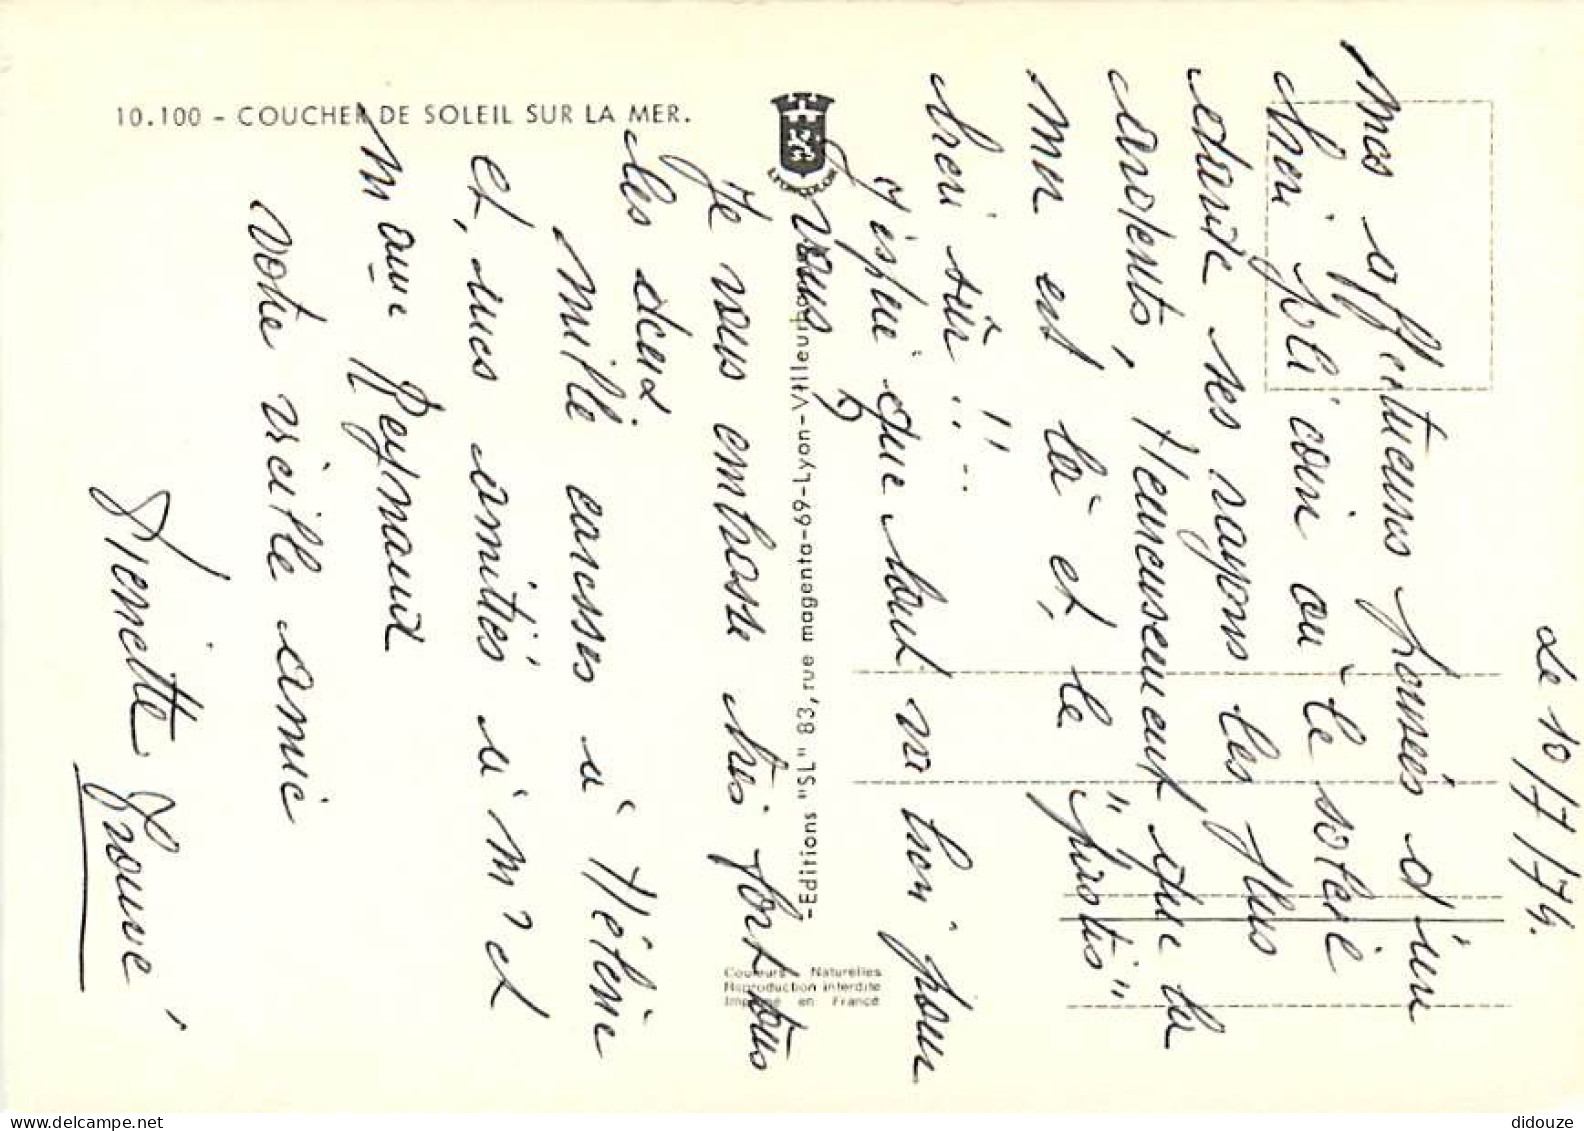 10.100 - COUCHER DE SOLEIL SUR LA MER.
LYONCOLOR
-Editions "SL" 83, rue magenta-69-Lyon-Villeurb
Couleurs Naturelles
Reproduction interdite
Imprimé en France
Le 10/7/74.
Mes affectueuses pensées d'un
chari joli coin où le soleil
étande ses rayons les plus
avolents, Heureusement que la
mer est là et, le "pastis"
bien sûr !! ..
J'espère que tout va bien pour
vous
Je vous embrasse très fort tous
les deux
Mille caresses à Hélène
et, mes amitiés à Mr et
Mme Reynaud
votre vieille amie
Pierrette
didouze